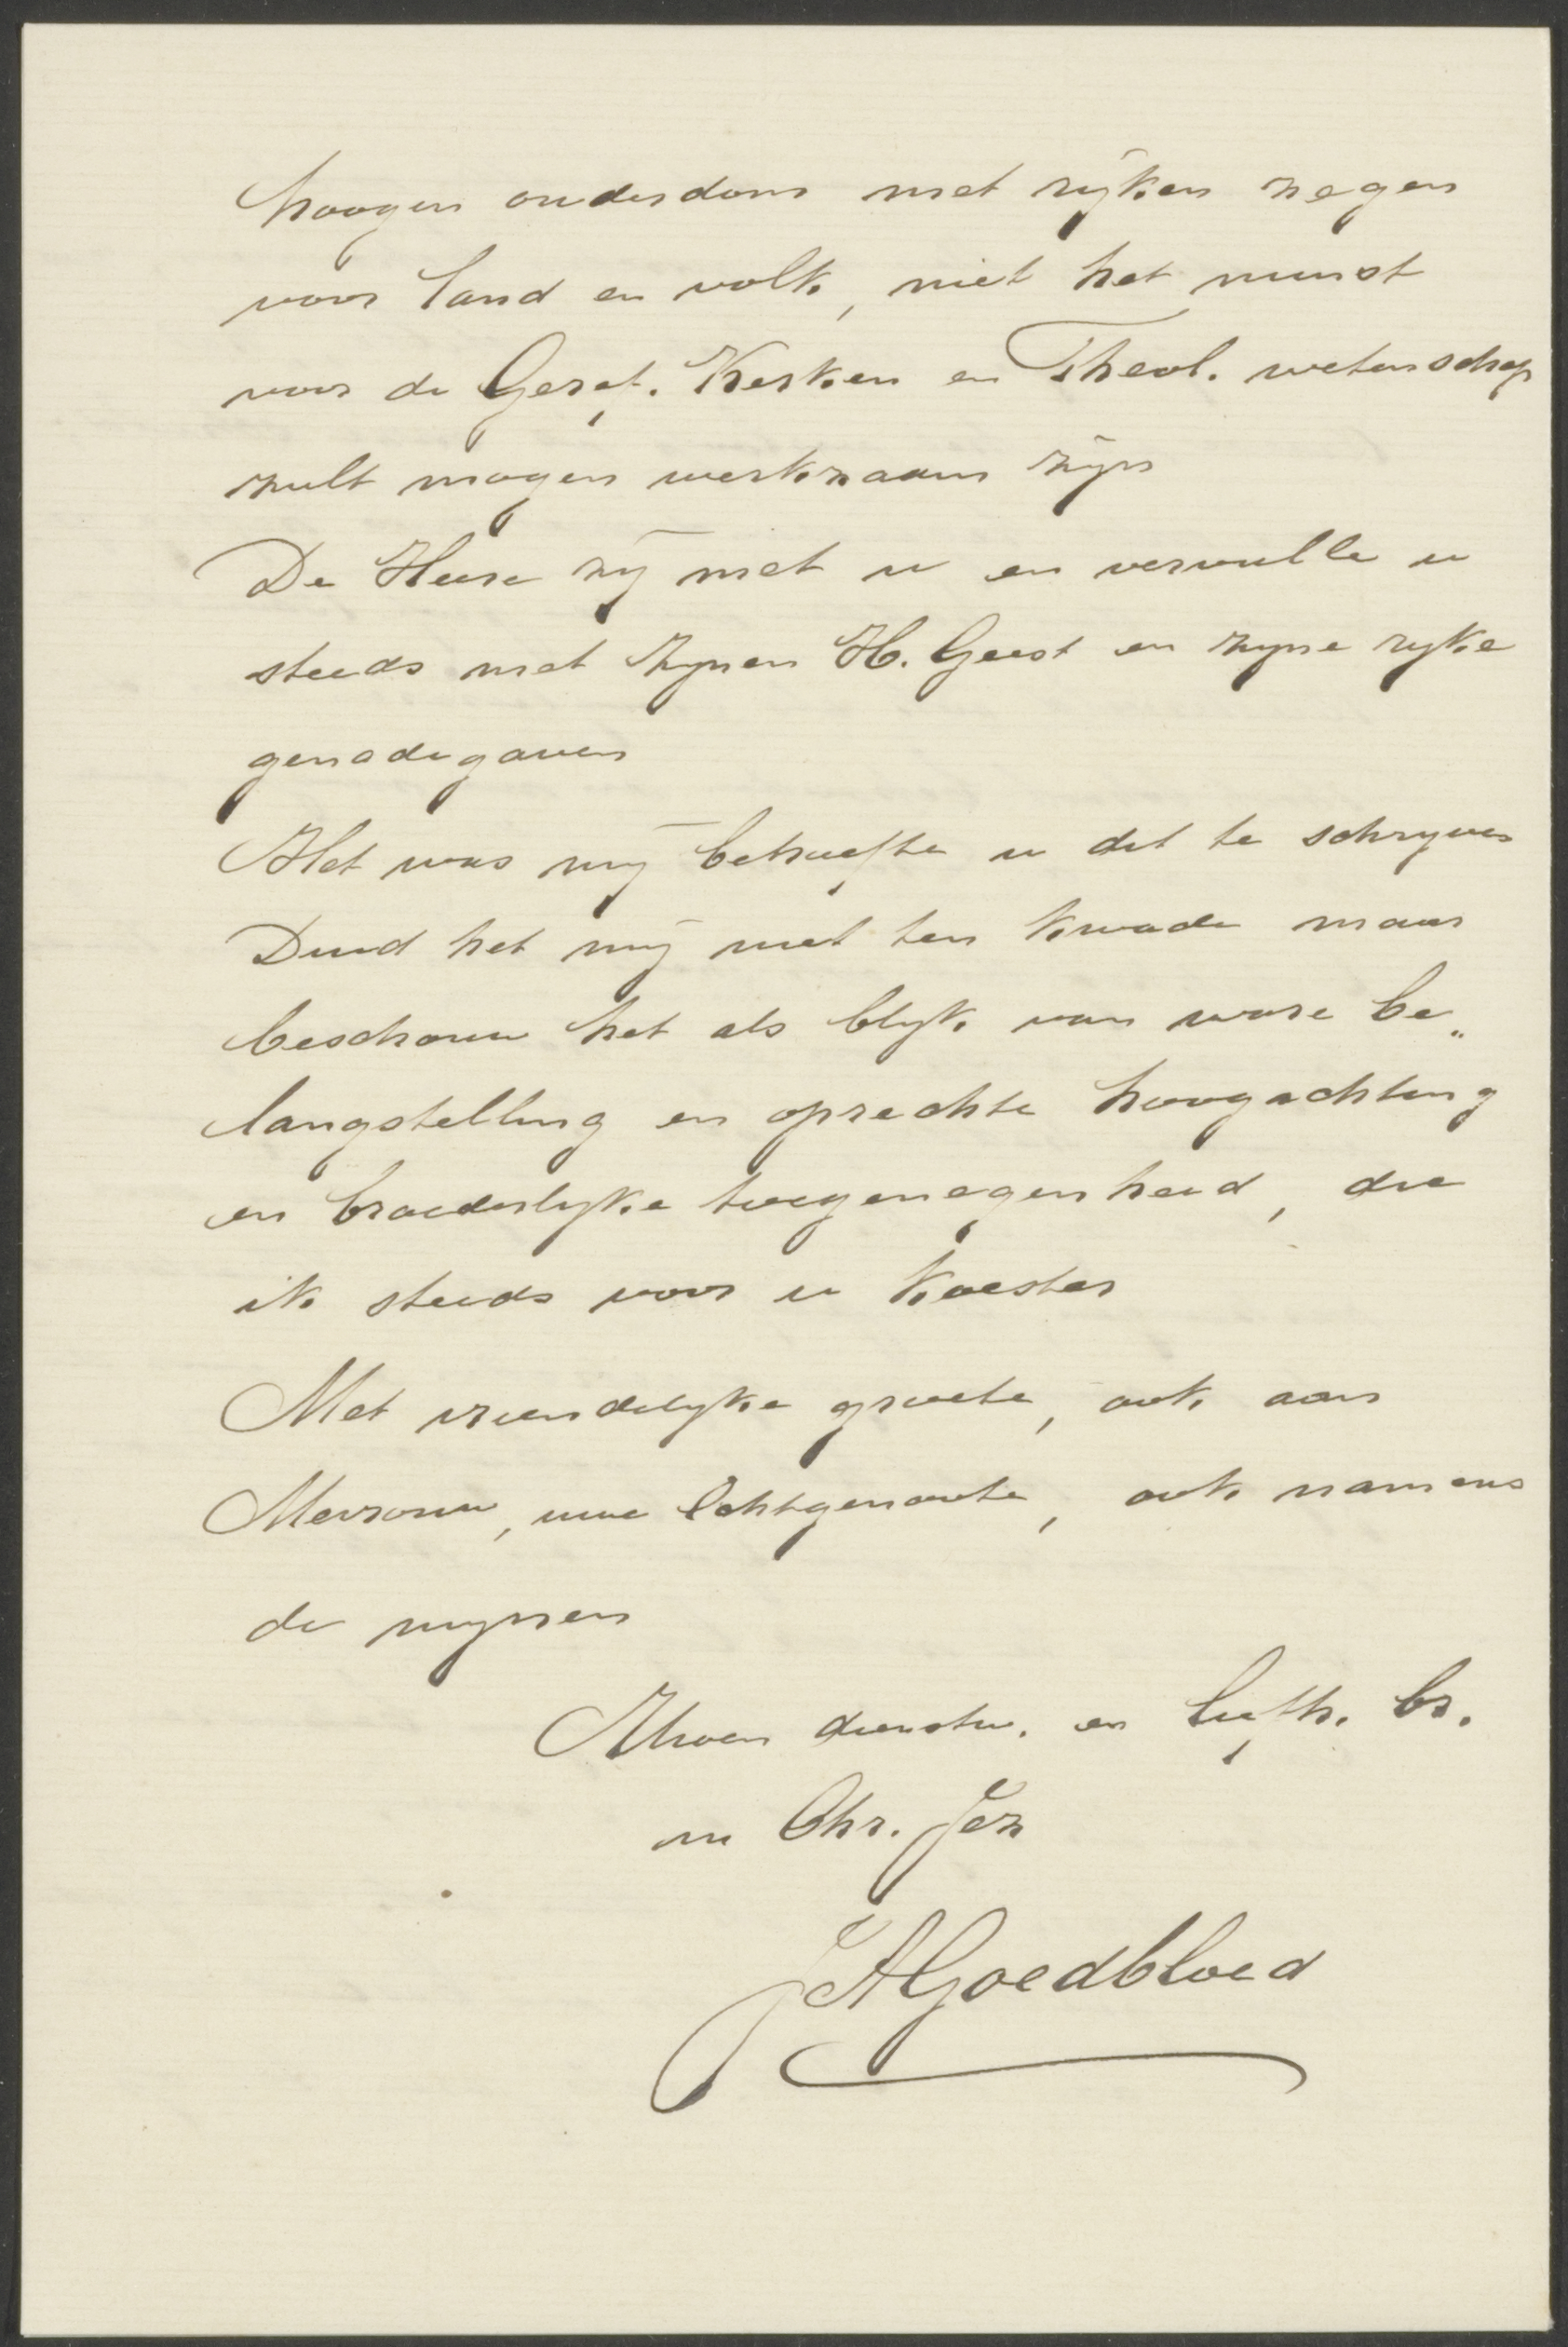 hoogen ouderdom met rijken zegen
voor land en volk, niet het minst
voor de Geref. Kerken en Theol. wetenschap
zult mogen werkzaam zijn
De Heere zij met u en vervulle u
steeds met Zijnen H. Geest en zijne rijke
genadegaven
Het was mij behoefte u dit te schrijven
Duid het mij niet ten kwade maar
beschouw het als blijk van ware be„
langstelling en oprechte hoogachting
en broederlijke toegenegenheid, die
ik steeds voor u koester
Met vriendelijke groete, ook aan
Mevrouw, uwe Echtgenoote, ook namens
de mijnen
Uwen dienstw. en liefh. br.
in Chr. Jez
JAGoedbloed